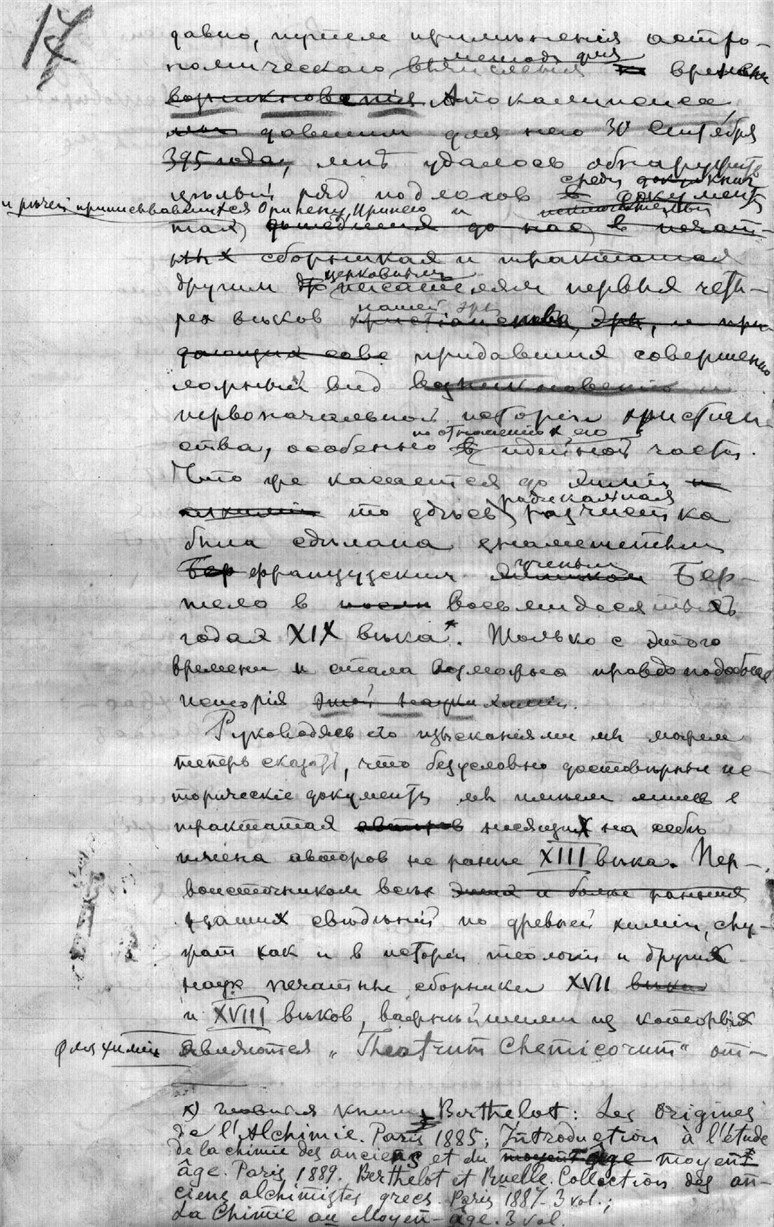 17
давно, путем примѣненія астро-
номическаго метода для вычисленія времени
возникновенія Апокалипсиса,
давшим для него 30 Сентября
395 года, мнѣ удалось обнаружить
цѣлый ряд подлогов среди документ
и рѣчей приписывавшихся Оригену, Иринею и
дошедшия до нас, в печат-
ных сборниках и трактатах
другим церковным писателям первых четы-
рех вѣков нашей эры христианства, эры, и при
дающих себе придавших совершенно
ложный вид возникновению и
первоначальной исторіи христиан
ства, особенно по отношенію к его идейной части.
Что же касается до химіи и
алхиміи то здѣсь радикальная расчистка
была сдѣлана знаменитым
Бер французским ученым химиком Бер-
тело в восьмидесятых
годах XIX вѣка*. Только с этого
времени и стала возможна правдоподобная
исторія этой науки химіи.
Руководясь его изысканіями мы можем
теперь сказать, что безусловно достовѣрные ис-
торическіе документы мы имѣем лишь в
трактатах авторов носящих на себѣ
имена авторов не раньше XIII вѣка. Пер-
воисточником всѣх и более ранних
наших свѣдѣній по древней химіи, слу-
жат как и в исторіи теологіи и других
наук печатные сборники XVII вѣка
и XVIII вѣков, важнѣйшим из которых
для химіи являются „Theatrum Chemicorum“ от-
*) Berthelot: Les Origines
de l'Alchimie. Paris 1885; Introduction à l'étude
de la chimie des anciens et du moyen age moyen
âge. Paris 1889. Berthelot et Ruelle. Collection des an-
ciens alchimistes grecs. Paris 1887. 3 vol.;
La Chimie au Moyen-âge. 3 vol.